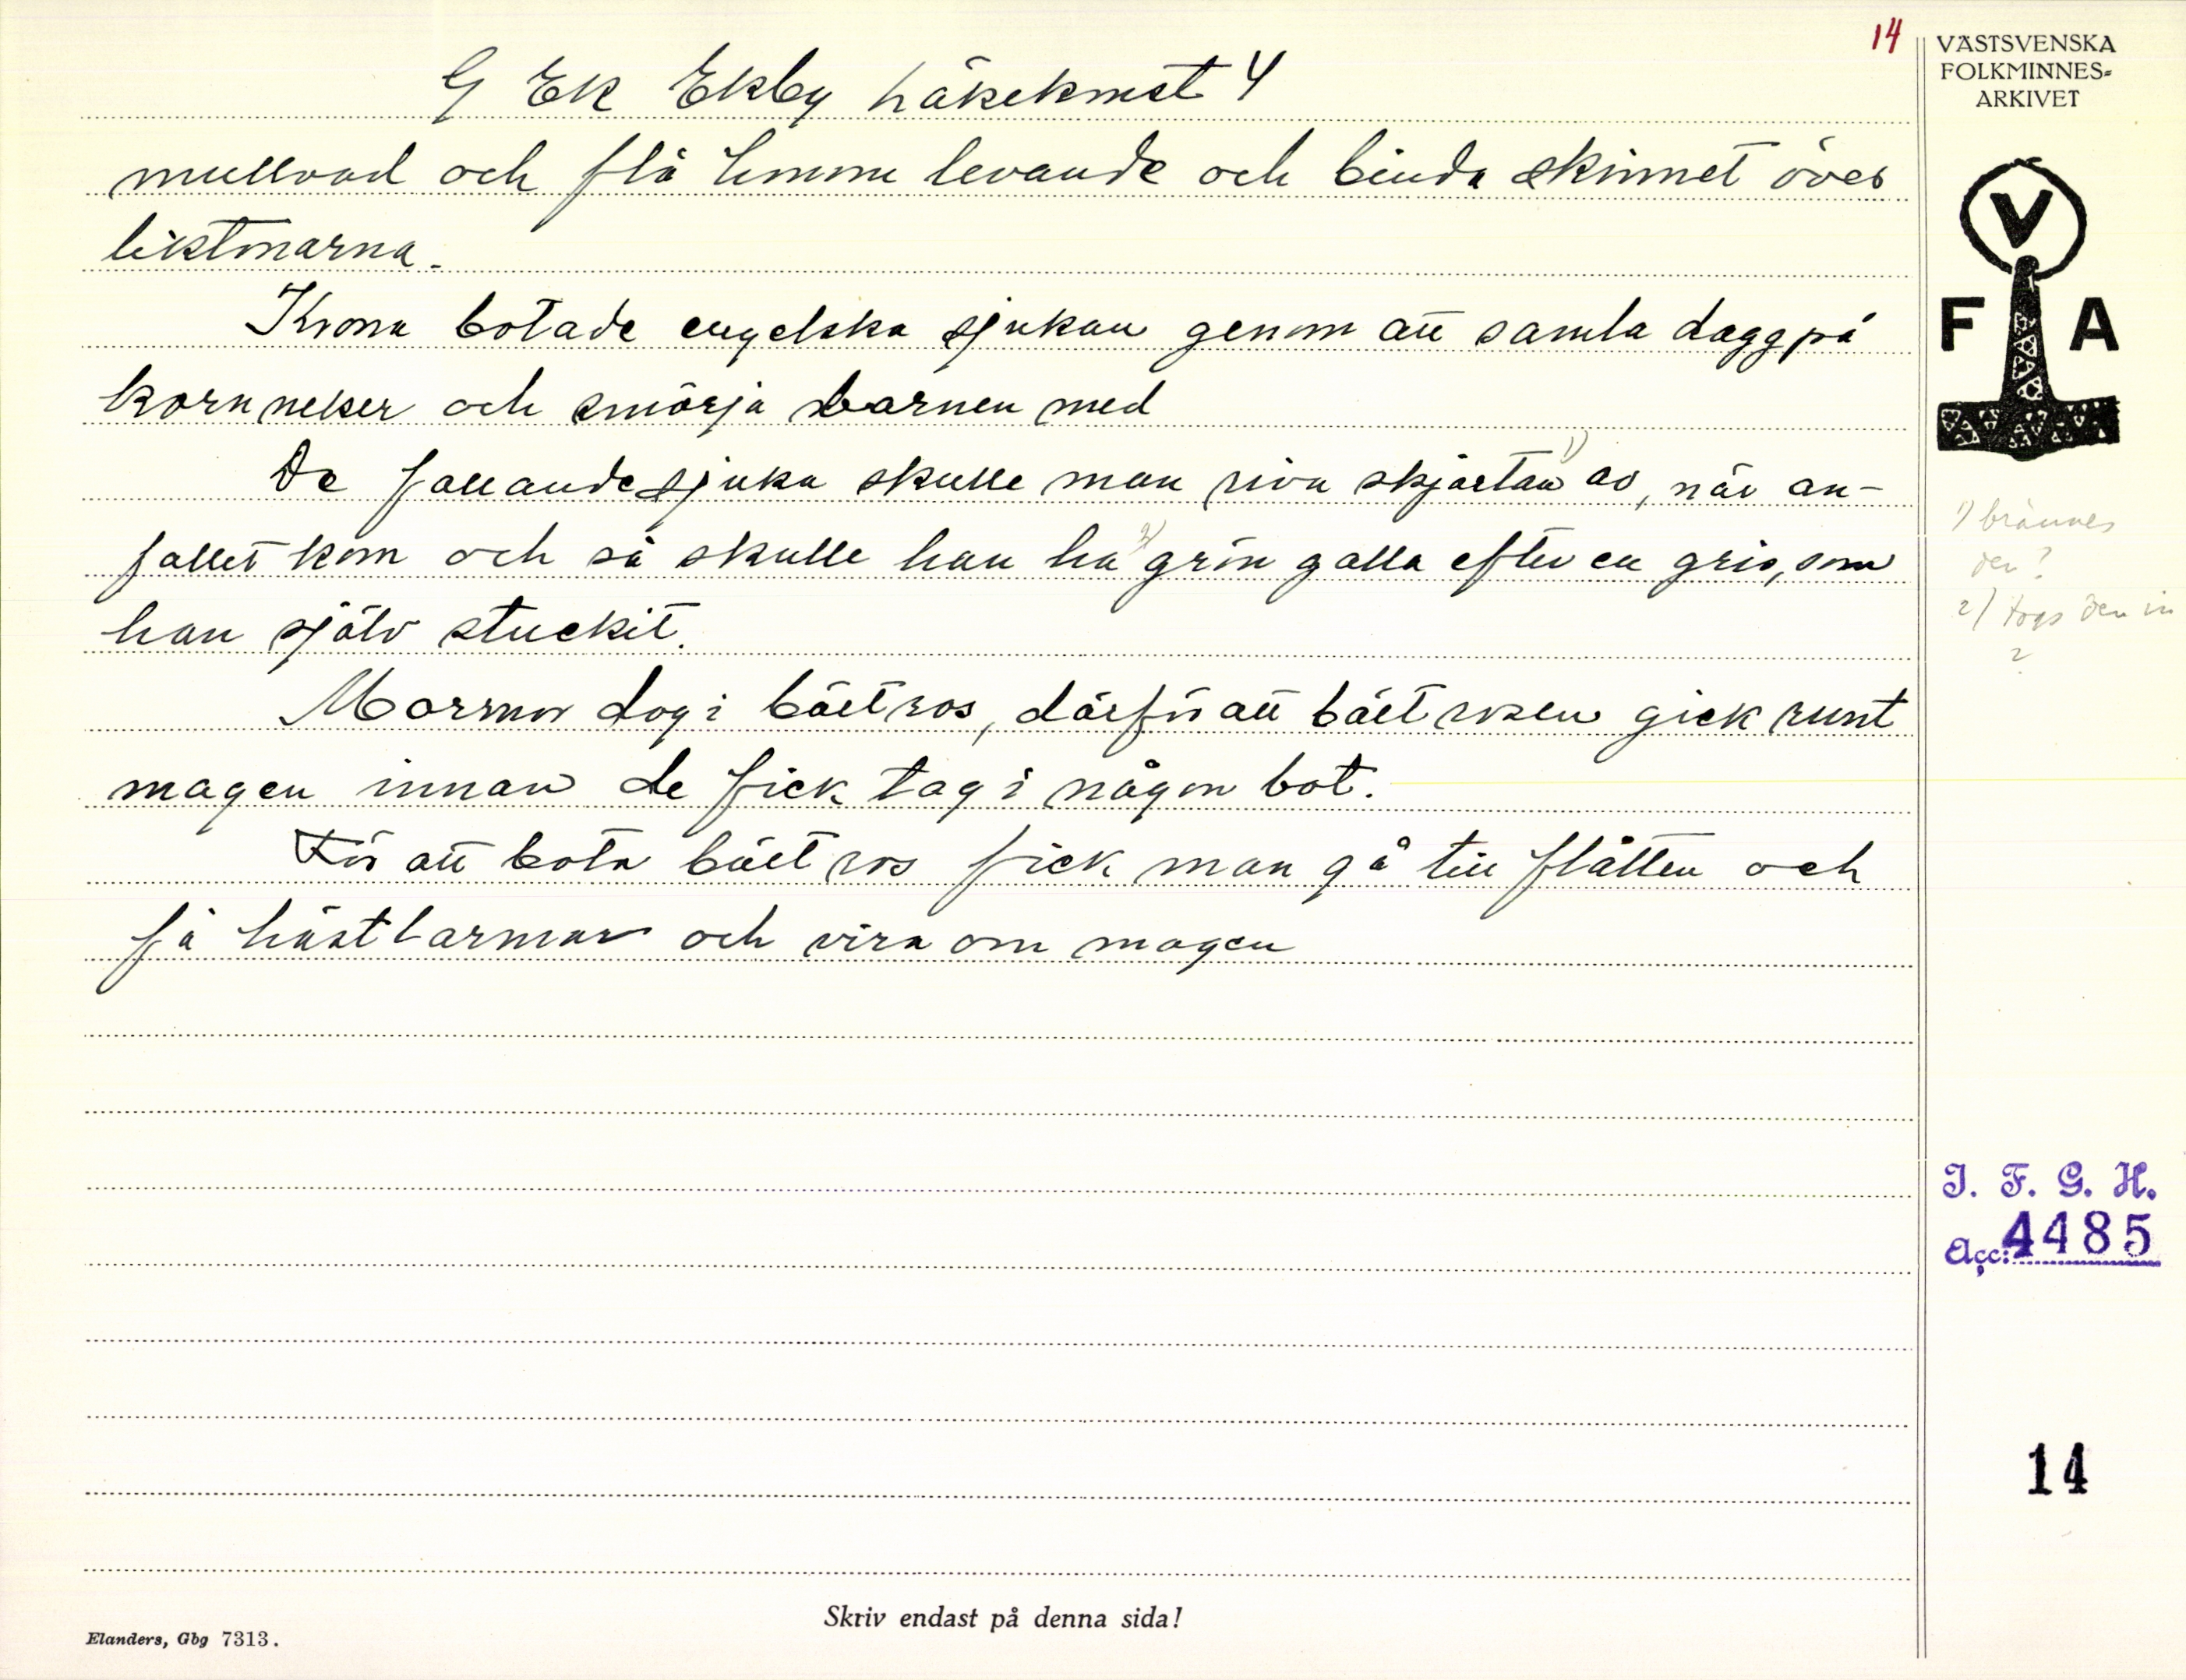 14
VÄSTSVENSKA
FOLKMINNES=
ARKIVET
G Ek Ekby Läkekonst 4
mullvad och flå honom levande och binda skinnet över
liktornarna.
Krona botade engelska sjukan genom att samla dagg på
kornneker och smörja barnen med
De fallandesjuka skulle man riva skjortan 1) av, när an-
fallet kom och så skulle han ha 2) grön galla efter en gris, som
han själv stuckit.
Mormor dog i bältros, därför att bältrosen gick runt
magen innan de fick tag i någon bot.
För att bota bältros fick man gå till flåtten och
få hästtarmar och vira om magen
V
F A
1) brännes
den?
2) togs den in
?
I. F. G. H.
Acc: 4485
14
Skriv endast på denna sida!
Elanders, Gbg 7313.